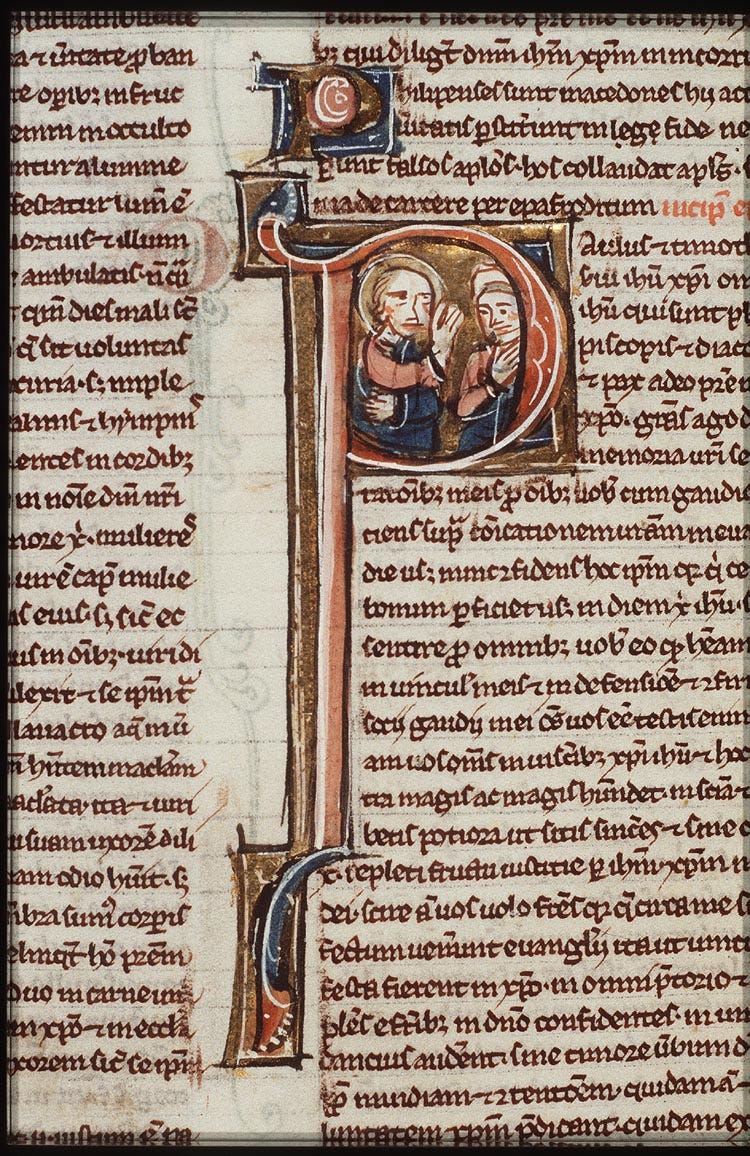 a ⁊ u̅itate ꝓban
re oꝑibꝫ infruc
enim in occulto
ntur a lumine
festatur lum̅ e̅
ortuis ⁊ illum
ambulatis. n̅ q̅i
t qm̅ dies mali st̅
q̅ sit uoluntas
curia. sꝫ imple
almis ⁊ hympnis
entes in cordibꝫ
in noi̅e dn̅i nr̅i
more x̅. mulieres
uir e̅ cap̅ mulie
s eius. sꝫ sic̅ ec
us in oi̅bꝫ. uiri di
lexit ⁊ se ip̅m t̅
lauacro aq̅ in u̅
n̅ hn̅tem maclam
aclata. ita ⁊ uiri
suam uxore̅ dili
nam odio huit. sꝫ
mbra sum⁹ corꝑis
elinq̅t ho̅ p̅rem
duo in carne una
in xp̅o ⁊ in eccl̅a
uxorem sic̅ se ip̅m
bꝫ qui diligt̅ dn̅m ih̅m xp̅m in incorri
Philipenses sunt macedones hii acc
uitatis ꝑstit̅unt in lege fidei ne
ꝑunt falsos aplo̅s. hos collaudat apl̅s.
ma de carcere per epafroditum incip̅ e
Paulus ⁊ timot
bui ih̅u xp̅i om
ih̅u qui sunt ph
piscopis ⁊ diac
⁊ pax a deo pr̅e n
xp̅o. gr̅as ago d
memoria ur̅i se
rac̅oibꝫ meis ꝓ oi̅bꝫ uob̅ cum gaudi
tiens suꝑ co̅icationem ur̅am in eua
die usꝫ nunc ꝯfidens hoc ip̅m qꝫ q̅ ce
bonum ꝑficiet usꝫ in diem x̅ ih̅u.
sentire ꝓ omnibꝫ uob̅ eo qꝫ he̅am
in uinculis meis ⁊ in defensio̅e ⁊ ꝯfir
socii gaudii mei o̅s uos ee̅ testis enim
am uos om̅s in uisc̅ibꝫ xp̅i ih̅u ⁊ hoc
tra magis ac magis hu̅ndet. in sci̅a ⁊
betis potiora ut sitis sinc̅es ⁊ sine o
x̅. repleti fructu iusticie ꝑ ih̅m xp̅m in
dei. scire a̅ uos uolo fr̅es qꝫ q̅ circa me s
fectum uen̅unt euanglii ita ut uincu
festa fierent in xp̅o. in omni p̅torio ⁊
ple̅s e fr̅ibꝫ in dn̅o confidentes. in uin
dancius aude̅nt. sine timore u̅bum d
ꝓ inuidiam ⁊ ꝯtento̅em. quidam a̅
luntatem xp̅m p̅dicant. quidam ex